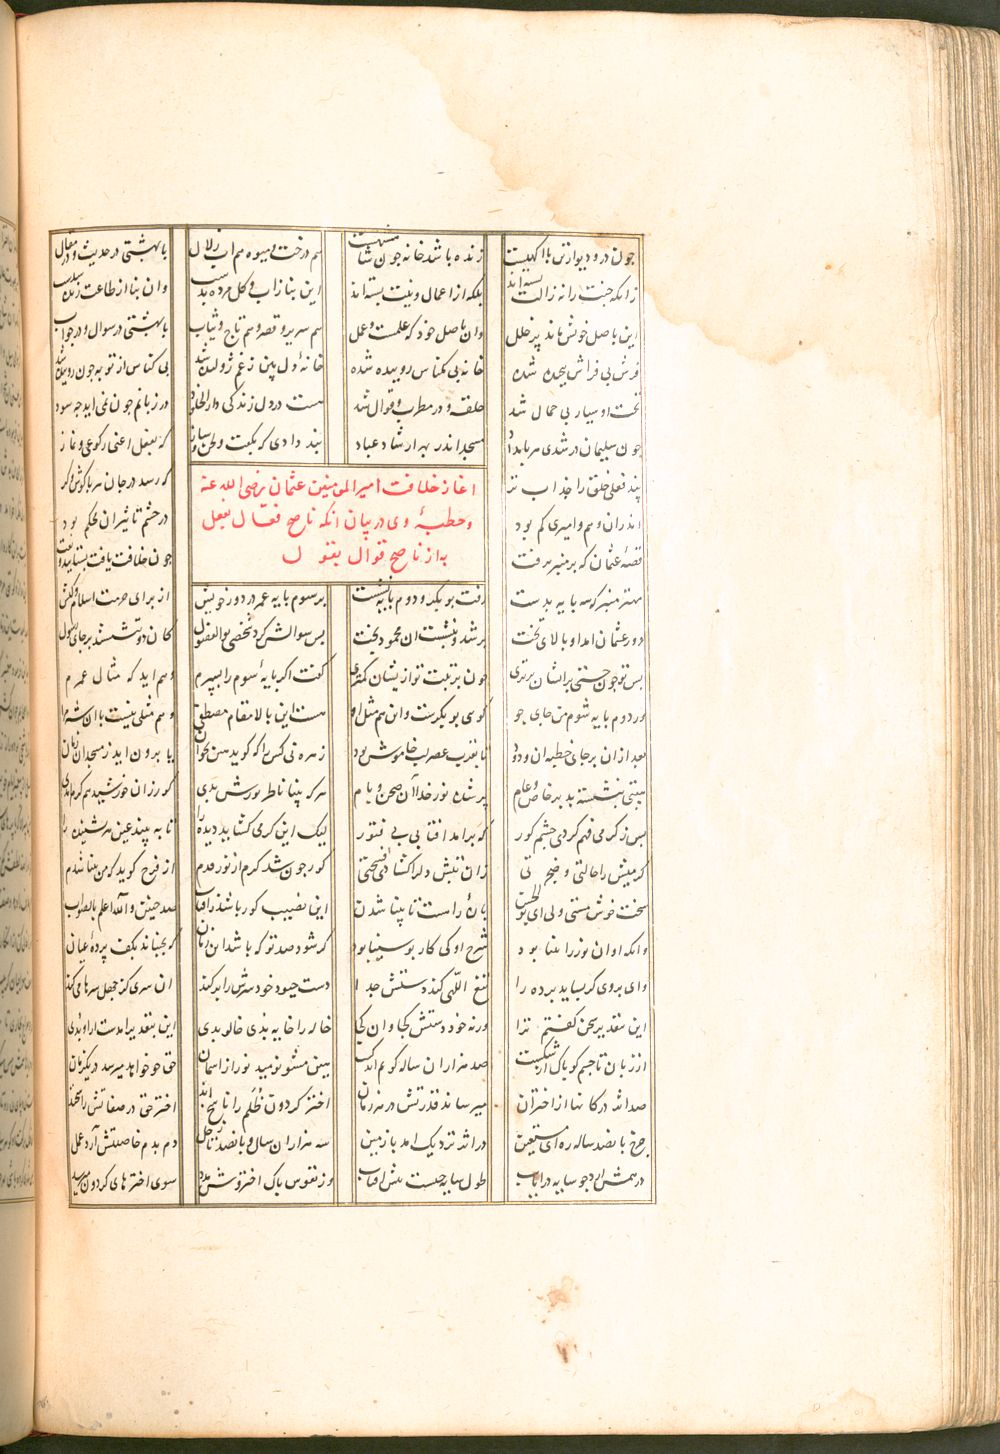 چون در و دیوار تن با اکهیست زنده باشد خانه چون شاهنشهیست هم درخت و میوه هم اب زلال با بهشتی در حدیث و در مقال
زانکه جنت را نه زالت بسته اند بلکه از اعمال و نیت بسته اند این بنا ز اب و کل مرده بدست وان بنا از طاعت زنده شدست
این باصل خویش ماند پر خلل وان باصل خود که علمست و عمل هم سریر و قصر و هم تاج و ثیاب با بهشتی در سوال و در جواب
فرش بی فراش پیچیده شده خانه بی مکناس روبیده شده خانهٔ دل بین ز غم ژولیده شد بی کناس از توبه چون روبیده شد
تخت او سیار بی حمال شد حلقه و در مطرب و قوال شد هست در دل زندکی دار الخلود در زبانم چون نمی اید چه سود
چون سلیمان در شدی هر بامداد مسجد اندر بهر ارشاد عباد پند دادی که بکفت و لحن و ساز که بفعل اعنی رکوعی و نماز
پند فعلی خلق را جذاب تر که رسد در جان هر با کوش و کر
اندران وهم امیری کم بود در حشم تاثیر ان محکم بود
قصهٔ عثمان که بر منبر برفت چون خلافت یافت بشتابید تفت
اغاز خلافت امیر المومنین عثمان رضی الله عنه
و خطبهٔ وی در بیان انکه ناصح فعال بفعل
به از ناصح قوال بقول
مهتر منبر که سه پایه بدست رفت بوبکر و دوم پایه نشست بر سوم پایه عمر در دور خویش از برای حرمت اسلام و کیش
دور عثمان امد او بالای تخت بر شد و بنشست ان محمود بخت پس سوالش کرد شخصی بوالفضول کان دو ننشستند بر جای رسول
پس تو چون جستی بر ایشان برتری چون برتبت تو ازیشان کمتری کفت اکر پایهٔ سوم را بسپرم وهم اید که مثال عمرم
ور دوم پایه شوم من جای جو کوی بوبکرست و این هم مثل او هست این بالا مقام مصطفی وهم مثلی نیست با ان شه مرا
بعد ازان بر جای خطبه ان ودود تا بقرب عصر لب خاموش بود زهره نی کس را که کوید هین بخوان یا برون اید ز مسجد ان زمان
هیبتی بنشسته بد بر خاص و عام پر شده نور خدا آن صحن و بام هرکه بینا ناظر نورش بدی کور زان خورشید هم کرم امدی
پس ز کرمی فهم کردی چشم کور که برامد افتابی بی فتور لیک این کرمی کشاید دیده را تا به بیند عین هر بشنیده را
کرمیش را ضجرتی و حالتی زان تبش دل را کشادی فسحتی کور چون شد کرم از نور قدم از فرح کوید که من بینا شدم
سخت خوش مستی ولی ای بو الحسن پارهٔ راهست تا بینا شدن این نصیب کور باشد ز افتاب صد چنین و الله اعلم بالصواب
وانکه او ان نور را بینا بود شرح او کی کار بو سینا بود کر شود صد تو که باشد این زبان که بجنباند بکف پردهٔ عیان
وای بر وی کر بساید پرده را تیغ اللهی کند دستش جدا دست چبود خود سرش را بر کند ان سری کز جهل سرها می کند
این بتقدیر سخن کفتم ترا ورنه خود دستش کجا و ان کجا خاله را خایه بدی خالو بدی این بتقدیر امدست ار او بدی
از زبان تا چشم کو پاک از شکست صد هزاران ساله کویم اندکست هین مشو نومید نور از اسمان حق چو خواهد میرسد در یک زمان
صد اثر در کانها از اختران میرساند قدرتش در هر زمان اختر کردون ظلم را ناسخ اند اختر حق در صفاتش راسخند
چرخ پانصد ساله ره ای مستعین در اثر نزدیک امد با زمین سه هزاران سال و پانصد تا زحل دم بدم خاصیتش ارد عمل
در همش ارد چو سایه در ایاب طول سایه چیست پیش افتاب وز نفوس پاک اختروش مدد سوی اخترهای کردون میرسد